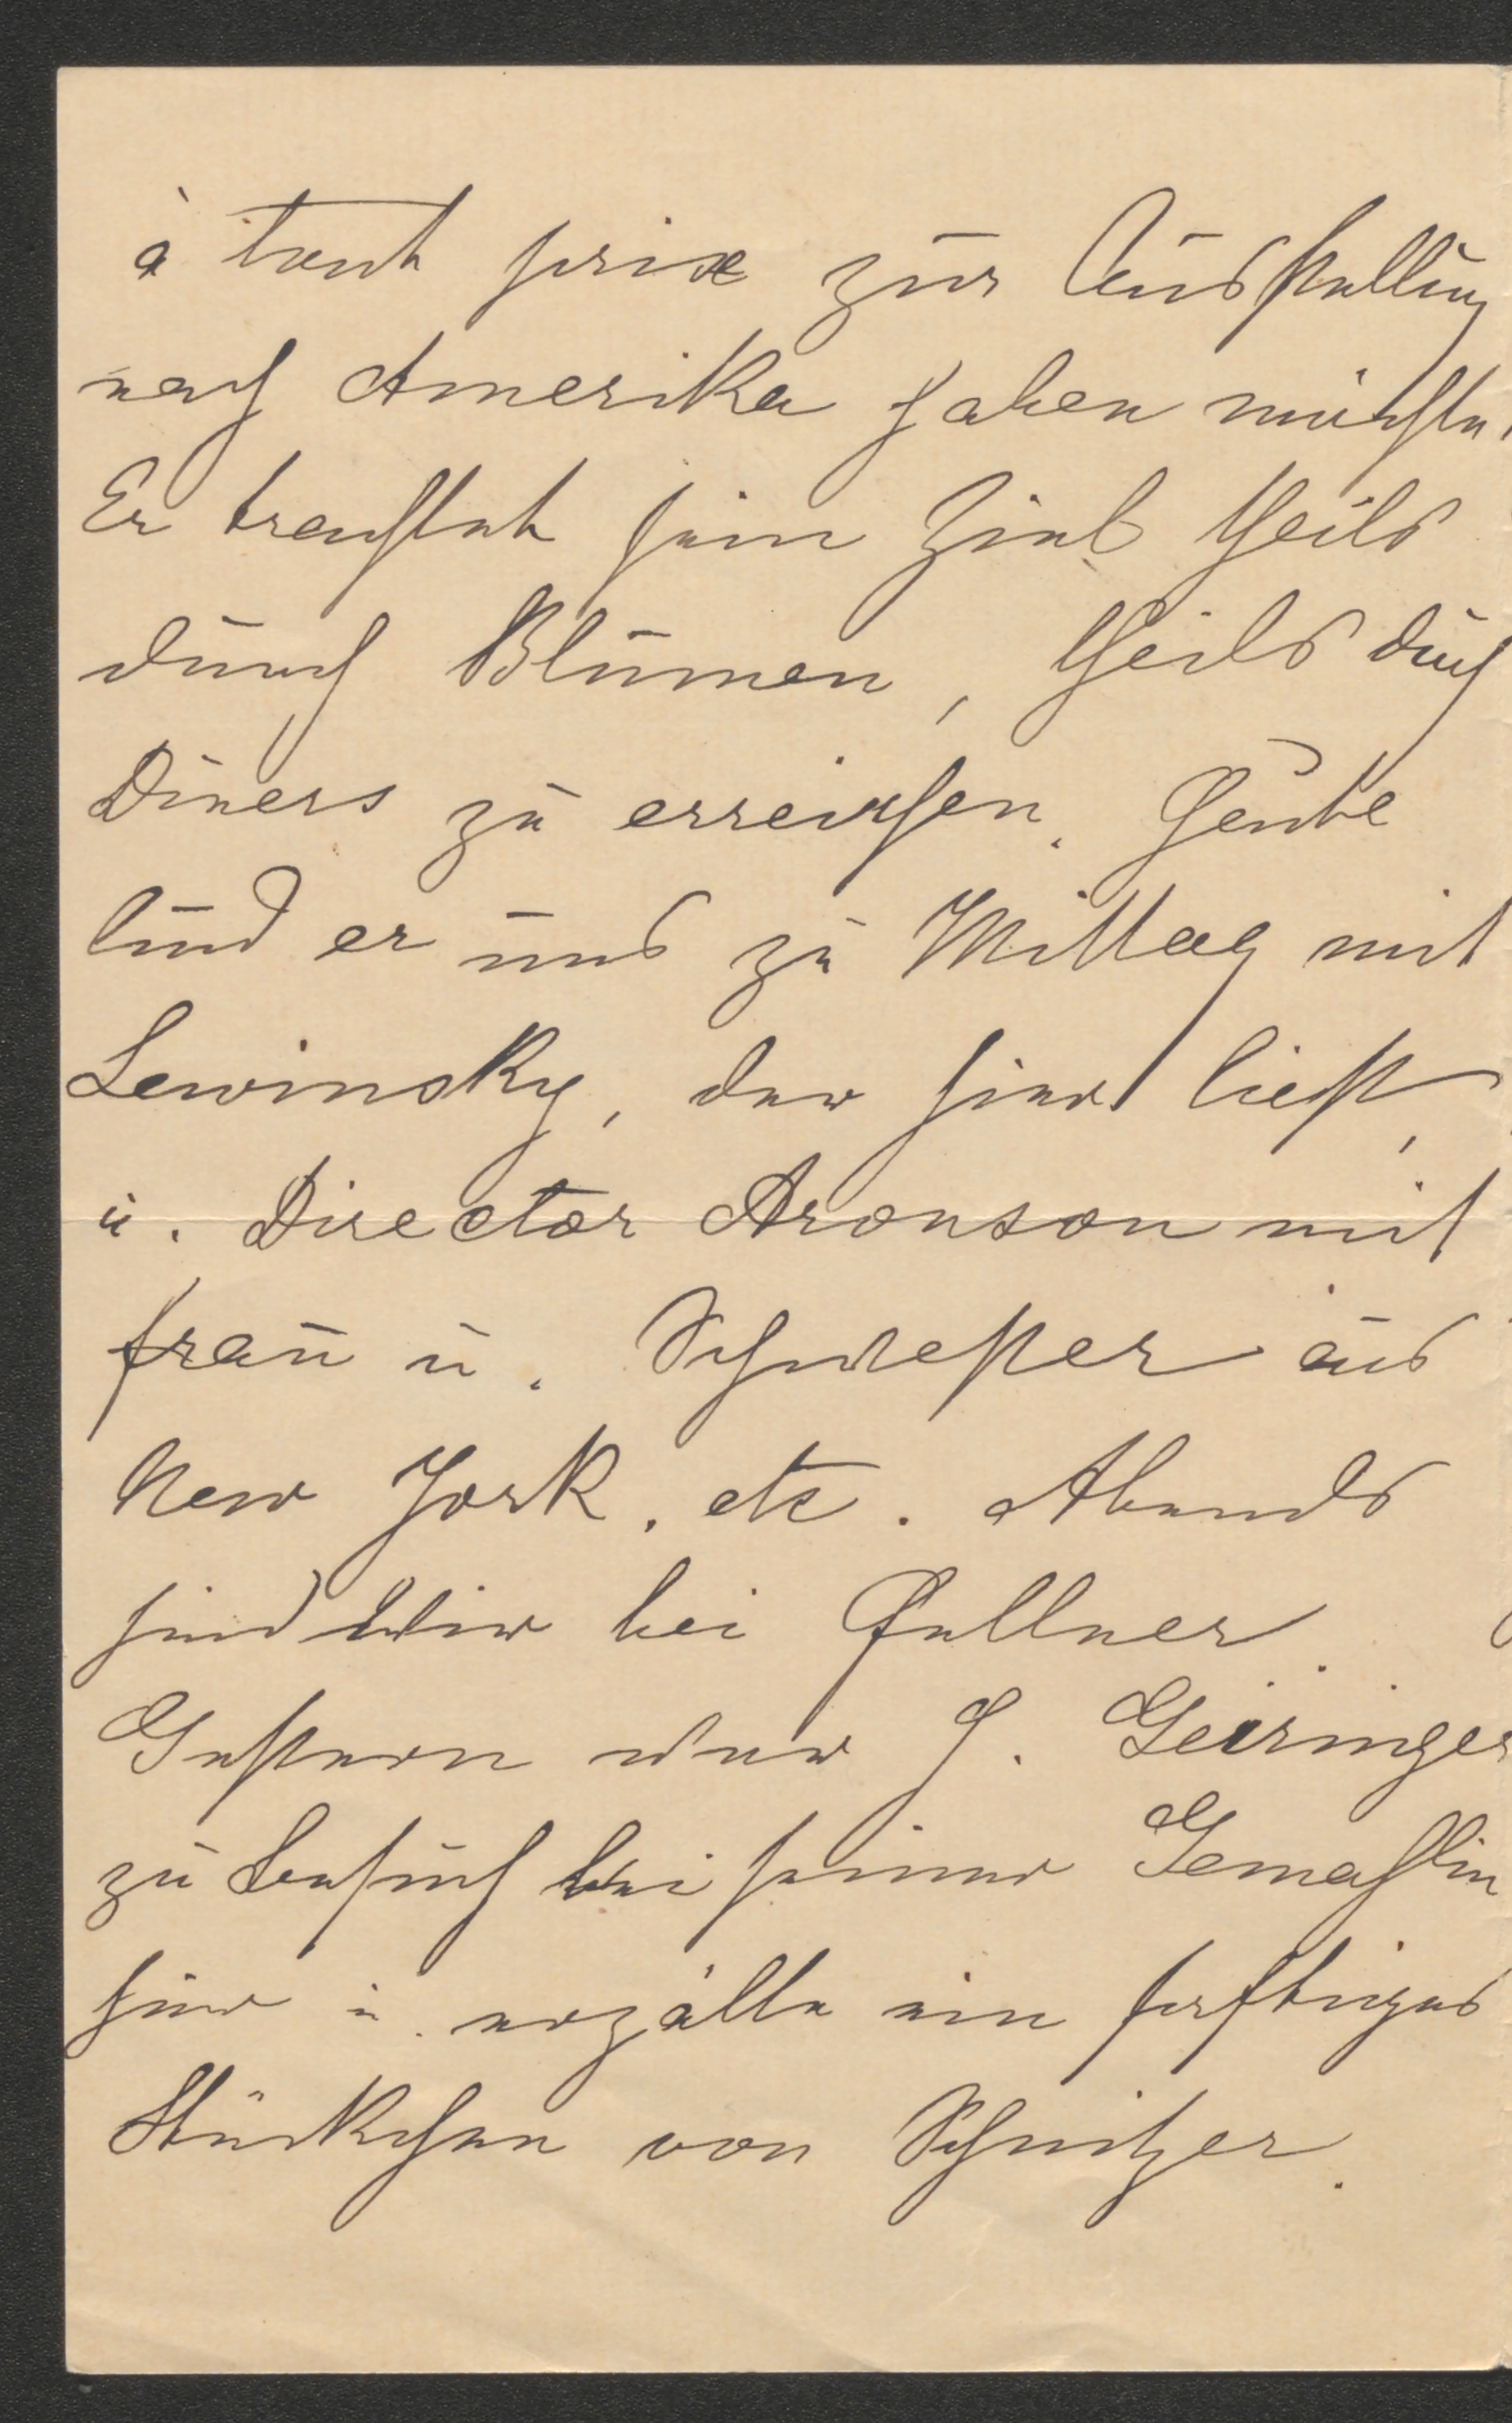 à tout prix zur Ausstellung
nach Amerika haben möchte.
Er trachtet sein Ziel theils
durch Blumen, theils durch
Diners zu erreichen. Heute
lud er uns zu Mittag mit
Lewinsky, der hier liest,
u. Director Aronson mit
Frau u. Schwester aus
New York. etc. Abends
sind wir bei Fellner.
Gestern war J. Geiringer
zu Besuch bei seiner Gemahlin
hier u. erzälte ein
Stückchen von Schnitzer.